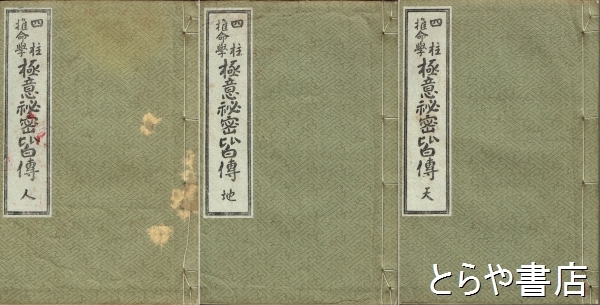 四柱
推命學
極意祕密皆傳
天
四柱
推命學
極意祕密皆傳
地
四柱
推命學
極意祕密皆傳
人
とらや書店